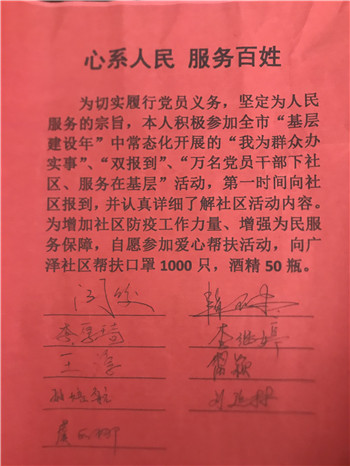 心系人民 服务百姓
为切实履行党员义务，坚定为人民
服务的宗旨，本人积极参加全市“基层
建设年”中常态化开展的“我为群众办
实事”、“双报到”、“万名党员干部下社
区、服务在基层”活动，第一时间向社
区报到，并认真详细了解社区活动内容。
为增加社区防疫工作力量、增强为民服
务保障，自愿参加爱心帮扶活动，向广
泽社区帮扶口罩 1000 只，酒精 50 瓶。